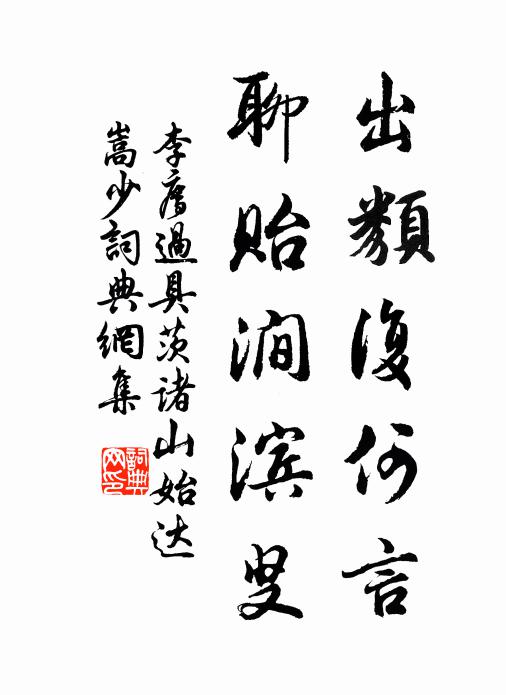 出類復何言
聊貽澗滨叟
李膺過具茨诸山始达
嵩少詞典網集
詞典
网印